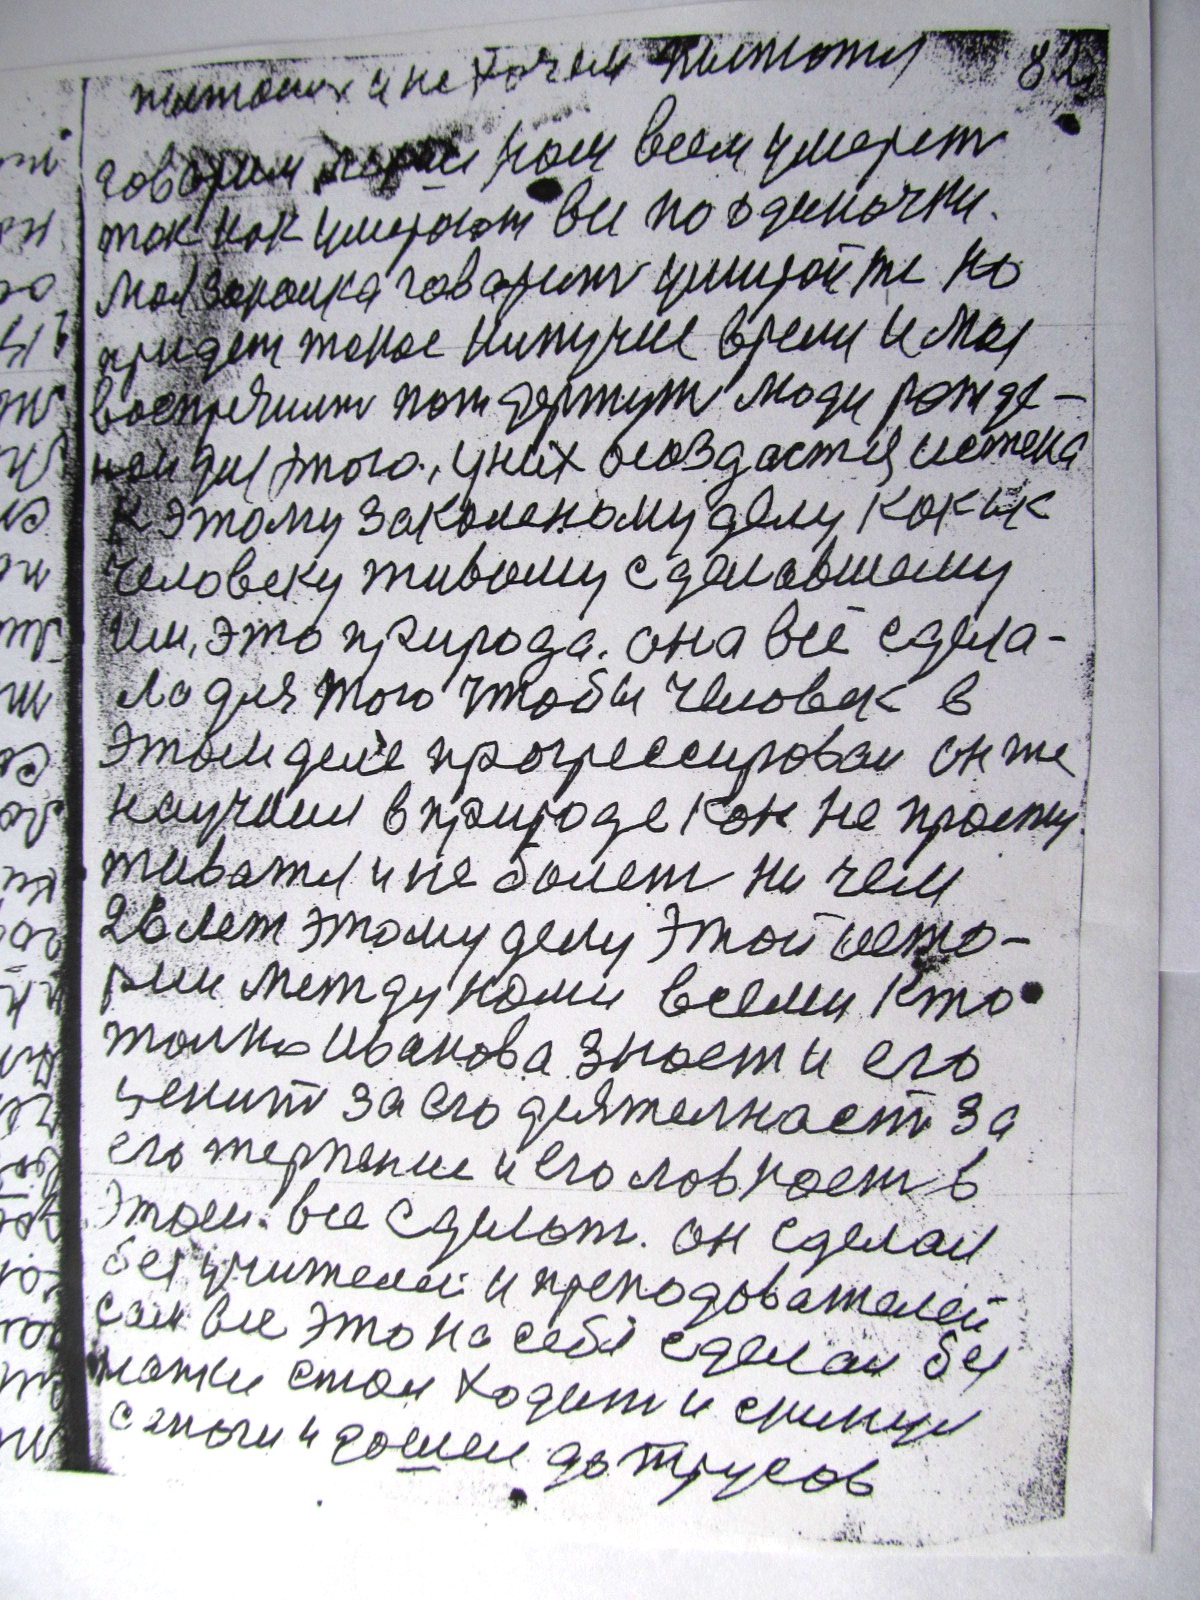 питаних и не хочем питатся 82
говорим порой нам всем умерет
так как умерают вси по одиночки.
Моя заромка говарит умирайте но
придет такое кипучие время и моя
воспрёчим потдержут люди рожде-
ной для этого., у них создастця истена
к этому закаленому делу как и к
человеку живому сделавшему
им, это природа. она всё сдела-
ла для того чтобы человек в
этом деле прогрессировал он же
научил в природе как не просту
живатся и не болет ни чем
26 лет этому делу этой исто-
рии между нами всеми кто
толко Иванова знает и его
ценит за его деятелност за
его терпение и его ловкост в
этом. все сделат. он сделал
без учителей и преподователей
сам все это на себя сделал без
шапки стал ходит и скинул
сапоги и дошел до трусов